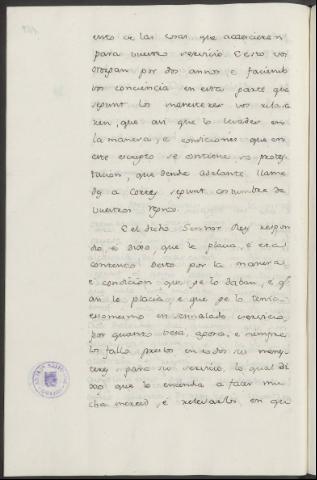 ento de las cosas que acaecieren
para vuestro servicio. E esto vos
otorgan por dos annos e faciendo
vos conciencia en esta parte que
segunt los menesteres vos relaxa
ren, que asi que lo levedes en
la manera, e condiciones que en
este escripto se contiene vos protes
tacion, que dende adelante llame
des a Cortes segunt costumbre de
vuestros Regnos.
E el dicho Sennor Rey respon
dio e dixo, que le placia, e era
contento desto por la manera
e condicion que ge lo daban, e q.
asi le placia, e que ge lo tenia
en sennalado servicio,
por quanto vera, agora, e siempre
los fallo prestos en todos sus menes
teres para su servicio, lo qual di
xo que le entendia a facer mu
cha merced, e relevarlos en qui